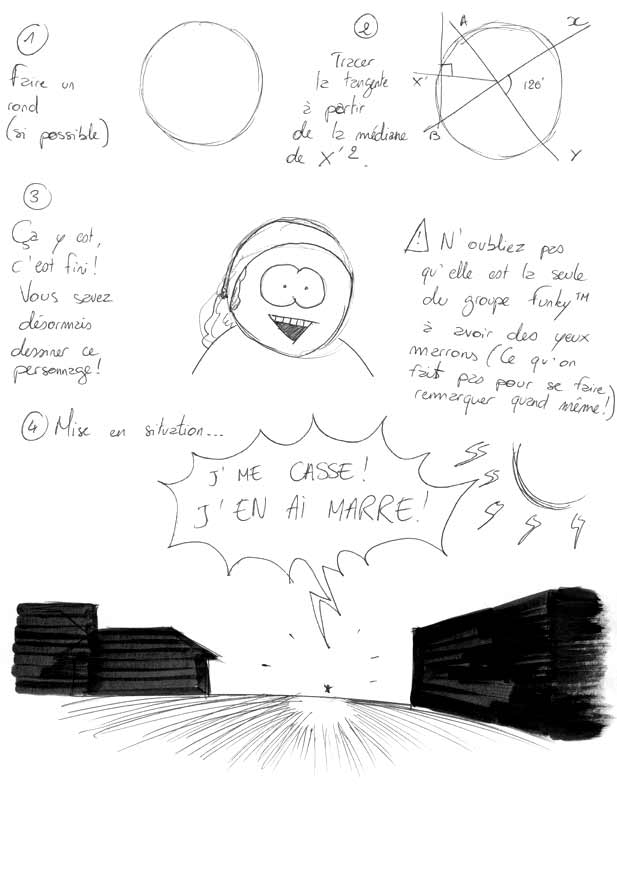 1
Faire un
rond
(si possible)
2
Tracer
la tangente
à partir
de la médiane
de X'2.
A
X
X'
120°
B
Y
3
Ça y est,
c'est fini!
Vous savez
désormais
dessiner ce
personnage!
! N'oubliez pas
qu'elle est la seule
du groupe Funky™
à avoir des yeux
marrons (Ce qu'on
fait pas pour se faire
remmarquer quand même!)
4 Mise en situation...
J'ME CASSE!
J'EN AI MARRE!